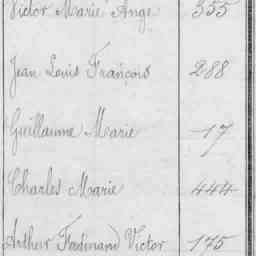 Victor Marie Ange 355
Jean Louis François 288
Guillaume Marie 17
Charles Marie 444
Arthur Ferdinand Victor 175